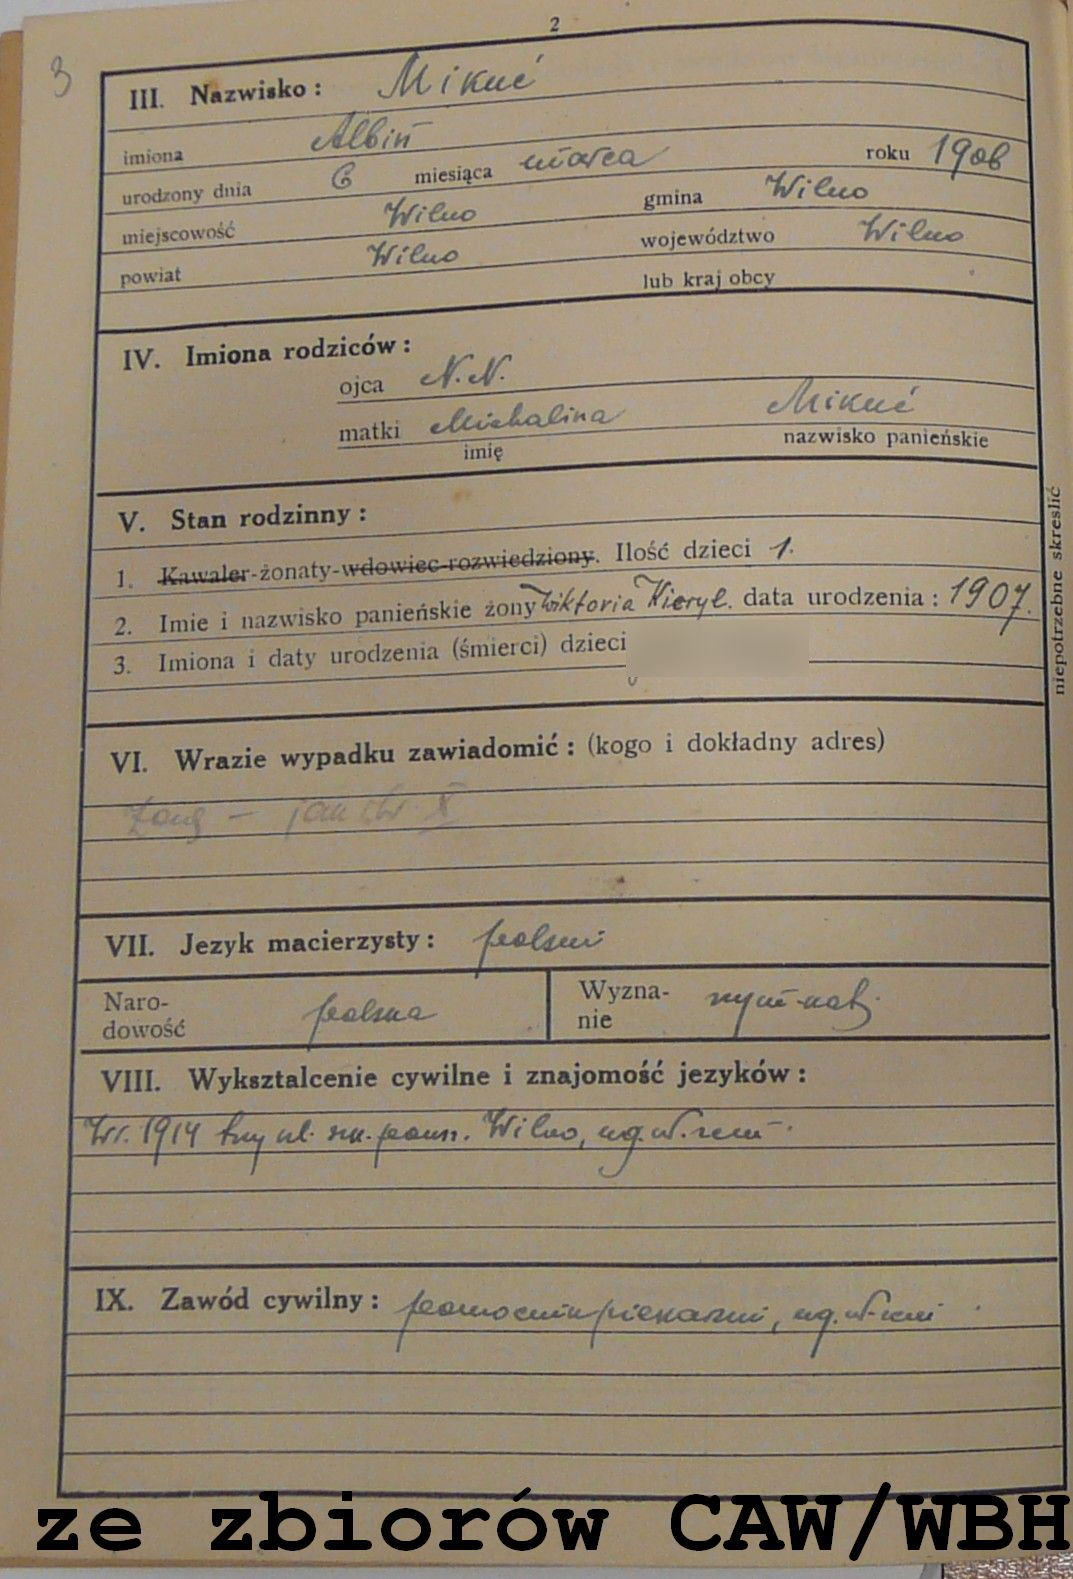 2
3
III. Nazwisko: Mikuć
imiona Albin
urodzony dnia 6 miesiąca marca roku 1906
miejscowość Wilno gmina Wilno
powiat Wilno województwo Wilno
lub kraj obcy
IV. Imiona rodziców:
ojca N.N.
matki Michalina Mikuć
imię nazwisko panieńskie
V. Stan rodzinny:
1. Kawaler-żonaty-wdowiec-rozwiedziony. Ilość dzieci 1.
2. Imie i nazwisko panieńskie żony Wiktoria Kieryl. data urodzenia: 1907.
3. Imiona i daty urodzenia (śmierci) dzieci
niepotrzebne skreslić
VI. Wrazie wypadku zawiadomić: (kogo i dokładny adres)
żonę – jak str. X
VII. Jezyk macierzysty: polski
Naro-
dowość polska
Wyzna-
nie rzym-kat.
VIII. Wyksztalcenie cywilne i znajomość jezyków:
W r. 1914 trzy kl. szk. powsz. Wilno, wg. w. zezn.
IX. Zawód cywilny: pomocnik piekarski, wg. w.
ze zbiorów CAW/WBH